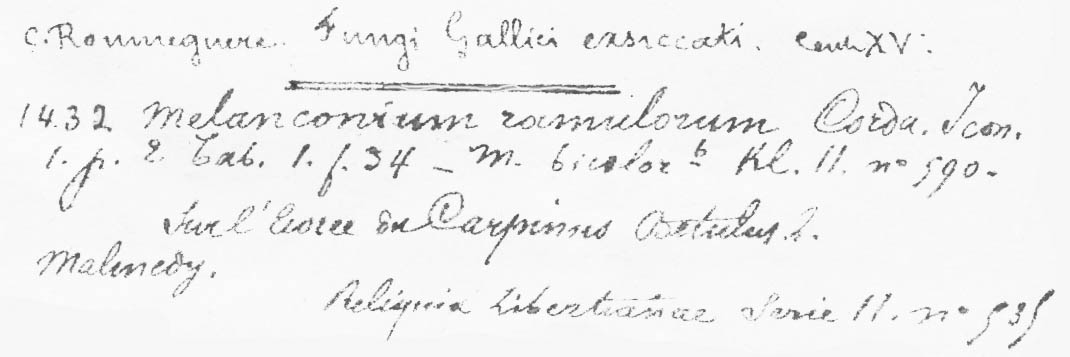 C. Roumeguere. Fungi Gallici exsiccati. Cent. XV.
1432 Melanconium ramulorum Corda. Icon.
1. p. 2 Tab. 1. f. 34 — M. bicolor b Kl. 11. n° 590.
Sur l'Ecorce du Carpinus Betulus L.
Malmedy.
Reliquiæ Libertianae Serie 11. n° 535